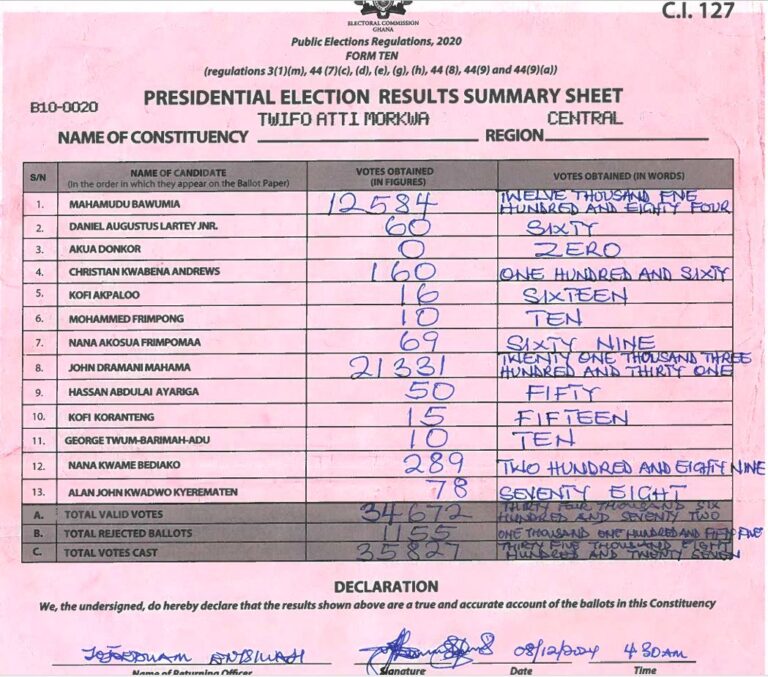 C.I. 127
ELECTORAL COMMISSION
GHANA
Public Elections Regulations, 2020
FORM TEN
(regulations 3(1)(m), 44 (7)(c), (d), (e), (g), (h), 44 (8), 44(9) and 44(9)(a))
B10-0020
PRESIDENTIAL ELECTION RESULTS SUMMARY SHEET
NAME OF CONSTITUENCY TWIFO ATTI MORKWA REGION CENTRAL
S/N NAME OF CANDIDATE (In the order in which they appear on the Ballot Paper) VOTES OBTAINED (IN FIGURES) VOTES OBTAINED (IN WORDS)
1. MAHAMUDU BAWUMIA 12584 TWELVE THOUSAND FIVE HUNDRED AND EIGHTY FOUR
2. DANIEL AUGUSTUS LARTEY JNR. 60 SIXTY
3. AKUA DONKOR 0 ZERO
4. CHRISTIAN KWABENA ANDREWS 160 ONE HUNDRED AND SIXTY
5. KOFI AKPALOO 16 SIXTEEN
6. MOHAMMED FRIMPONG 10 TEN
7. NANA AKOSUA FRIMPOMAA 69 SIXTY NINE
8. JOHN DRAMANI MAHAMA 21331 TWENTY ONE THOUSAND THREE HUNDRED AND THIRTY ONE
9. HASSAN ABDULAI AYARIGA 50 FIFTY
10. KOFI KORANTENG 15 FIFTEEN
11. GEORGE TWUM-BARIMAH-ADU 10 TEN
12. NANA KWAME BEDIAKO 289 TWO HUNDRED AND EIGHTY NINE
13. ALAN JOHN KWADWO KYEREMATEN 78 SEVENTY EIGHT
A. TOTAL VALID VOTES 34672 THIRTY FOUR THOUSAND SIX HUNDRED AND SEVENTY TWO
B. TOTAL REJECTED BALLOTS 1155 ONE THOUSAND ONE HUNDRED AND FIFTY FIVE
C. TOTAL VOTES CAST 35827 THIRTY FIVE THOUSAND EIGHT HUNDRED AND TWENTY SEVEN
DECLARATION
We, the undersigned, do hereby declare that the results shown above are a true and accurate account of the ballots in this Constituency
08/12/2024 4:30AM
Name of Returning Officer Signature Date Time